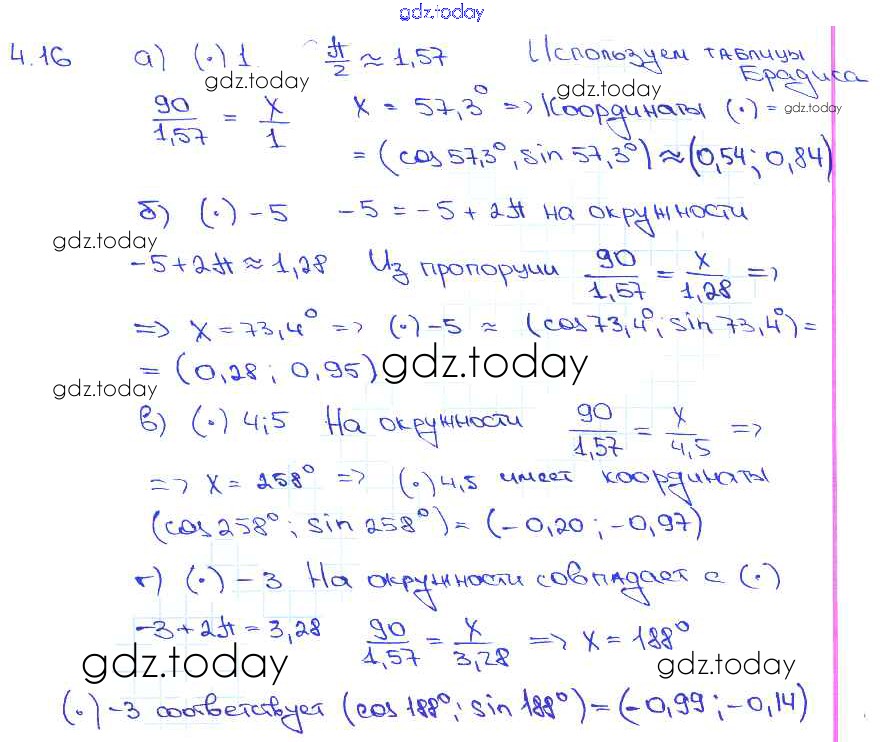 gdz.today
4.16 а) (·) 1 π/2 ≈ 1,57 Используем таблицы
Брадиса
gdz.today gdz.today
90/1,57 = x/1 x = 57,3° => Координаты (·) = gdz.today
= (cos 57,3°, sin 57,3°) ≈ (0,54; 0,84)
б) (·) -5 -5 = -5 + 2π на окружности
gdz.today
-5+2π ≈ 1,28 Из пропорции 90/1,57 = x/1,28 =>
=> x = 73,4° => (·) -5 ≈ (cos 73,4°; sin 73,4°) =
= (0,28; 0,95) gdz.today
gdz.today
в) (·) 4,5 На окружности 90/1,57 = x/4,5 =>
=> x = 258° => (·) 4,5 имеет координаты
(cos 258°; sin 258°) = (-0,20; -0,97)
г) (·) -3 На окружности совпадает с (·)
-3+2π = 3,28 90/1,57 = x/3,28 => x = 188°
gdz.today gdz.today
(·) -3 соответствует (cos 188°; sin 188°) = (-0,99; -0,14)